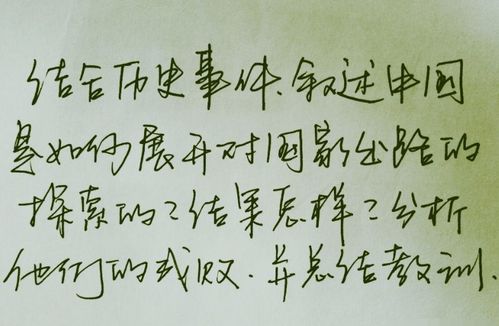 结合历史事件、叙述中国
是如何展开对国家出路的
探索的？结果怎样？分析
他们的成败．并总结教训．